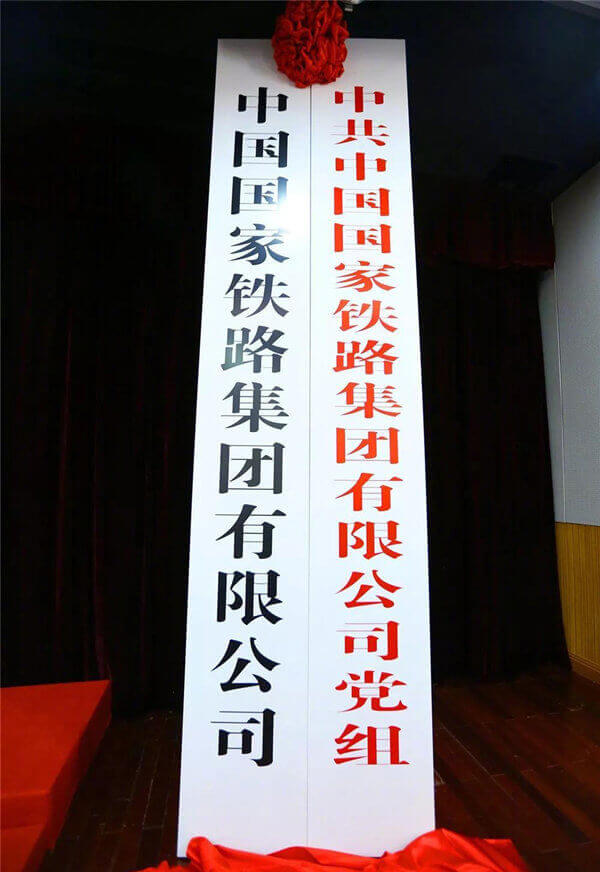 中共中国国家铁路集团有限公司党组
中国国家铁路集团有限公司